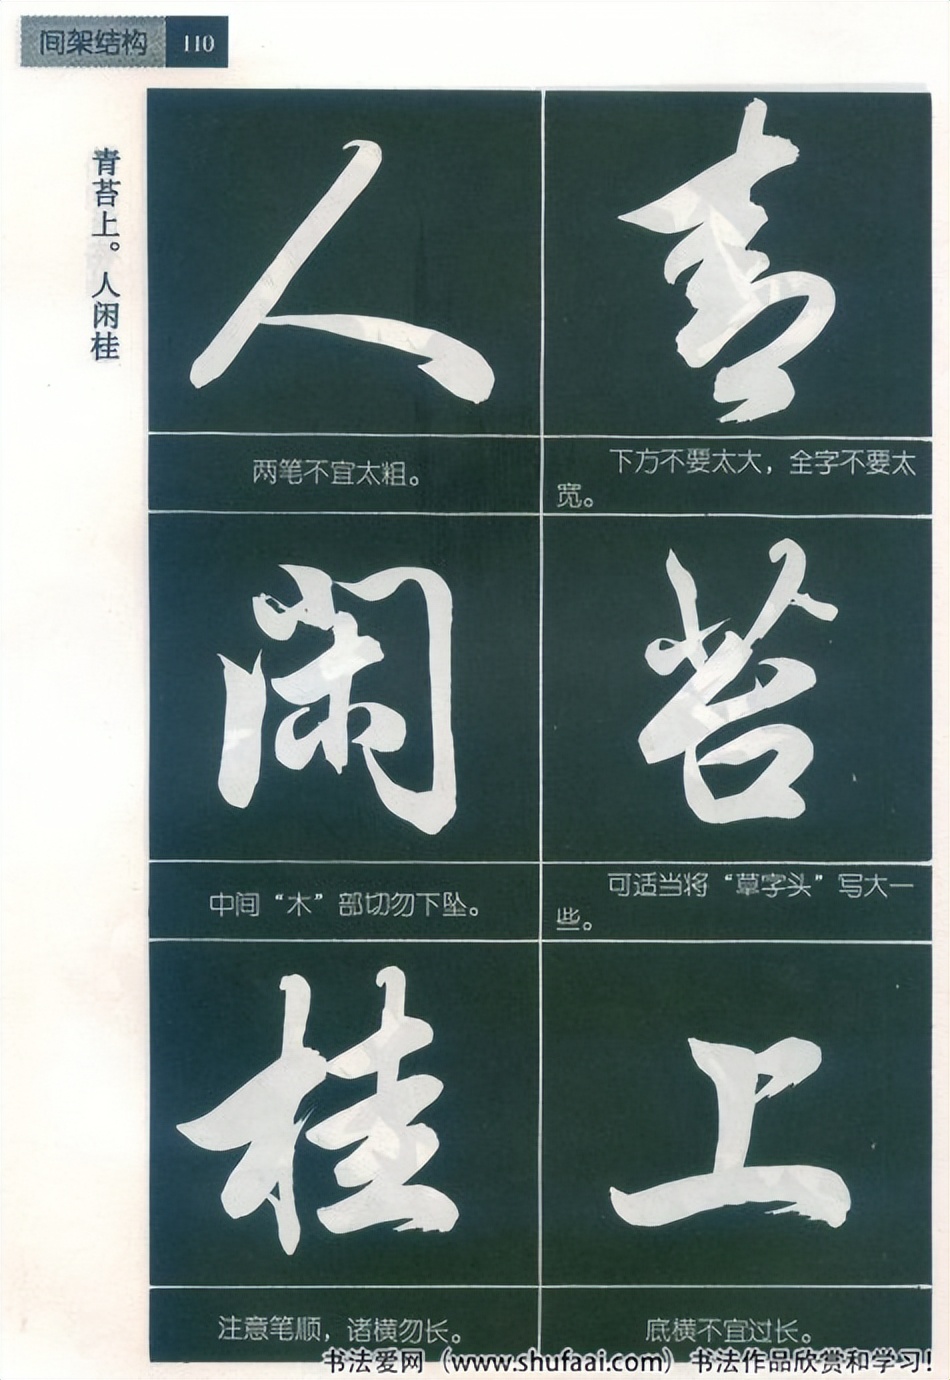 间架结构 110
青苔上。人闲桂
青
下方不要太大，全字不要太
宽。
苔
可适当将“草字头”写大一
些。
上
底横不宜过长。
人
两笔不宜太粗。
闲
中间“木”部切勿下坠。
桂
注意笔顺，诸横勿长。
书法爱网（www.shufaai.com）书法作品欣赏和学习！